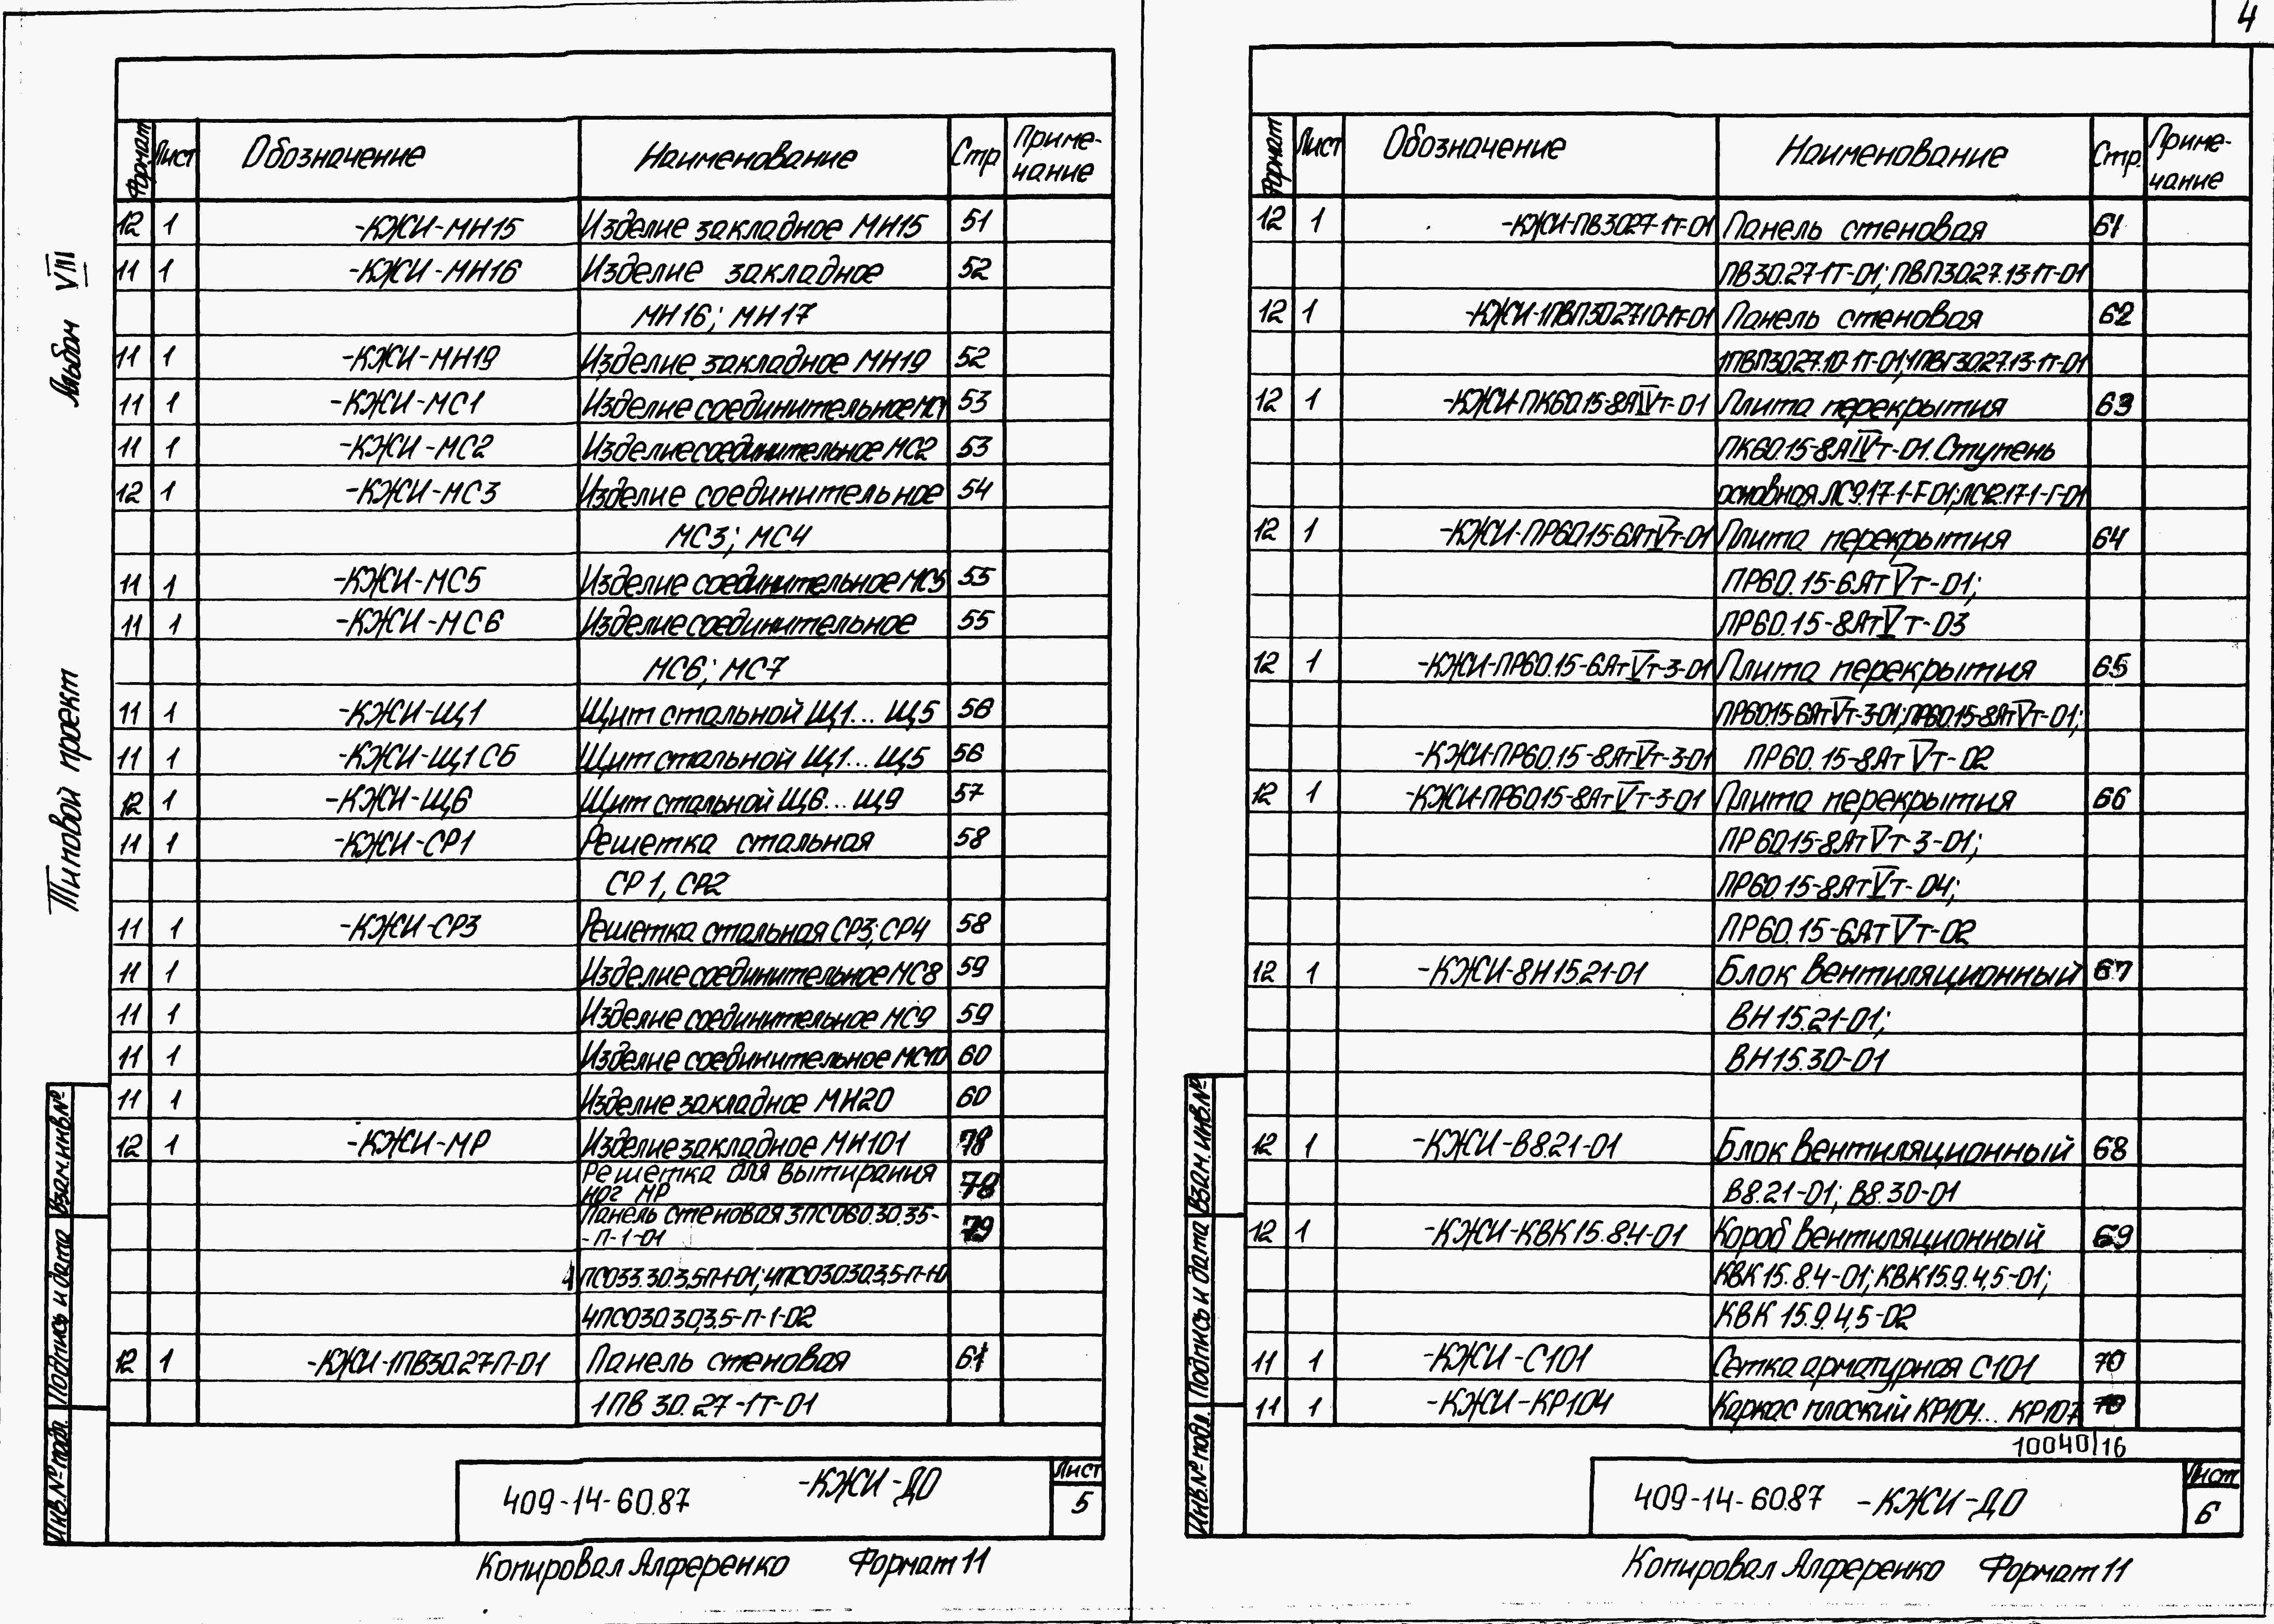 4
Альбом VIII
Типовой проект
Формат Лист Обозначение Наименование Стр Приме-
чание
12 1 -КЖИ-МН15 Изделие закладное МН15 51
11 1 -КЖИ-МН16 Изделие закладное 52
МН16; МН17
11 1 -КЖИ-МН19 Изделие закладное МН19 52
11 1 -КЖИ-МС1 Изделие соединительное МС1 53
11 1 -КЖИ-МС2 Изделие соединительное МС2 53
12 1 -КЖИ-МС3 Изделие соединительное 54
МС3; МС4
11 1 -КЖИ-МС5 Изделие соединительное МС5 55
11 1 -КЖИ-МС6 Изделие соединительное 55
МС6; МС7
11 1 -КЖИ-Щ1 Щит стальной Щ1... Щ5 56
11 1 -КЖИ-Щ1СБ Щит стальной Щ1... Щ5 56
12 1 -КЖИ-Щ6 Щит стальной Щ6... Щ9 57
11 1 -КЖИ-СР1 Решетка стальная 58
СР1, СР2
11 1 -КЖИ-СР3 Решетка стальная СР3; СР4 58
11 1 Изделие соединительное МС8 59
11 1 Изделие соединительное МС9 59
11 1 Изделие соединительное МС10 60
11 1 Изделие закладное МН20 60
12 1 -КЖИ-МР Изделие закладное МН101 78
Решетка для вытирания
ног МР 78
Панель стеновая 3ПС060.30.35-
-П-1-01 79
4ПС033.30.3,5П-1-01; 4ПС030.30.3,5-П-1-0
4ПС030.30,3,5-П-1-02
12 1 -КЖИ-1ПВ30.27П-01 Панель стеновая 61
1ПВ 30.27-1Т-01
409-14-60.87 -КЖИ-ДО Лист
5
Копировал Алференко Формат 11
Взам. инв. №
Подпись и дата
Инв. № подл.
Формат Лист Обозначение Наименование Стр. Приме-
чание
12 1 -КЖИ-ПВ30.27-1Т-01 Панель стеновая 61
ПВ30.27-1Т-01; ПВП30.27.13-1Т-01
12 1 -КЖИ-1ПВП30.27.10-1Т-01 Панель стеновая 62
1ПВП30.27.10-1Т-01; 1ПВГ30.27.13-1Т-01
12 1 -КЖИ-ПК60.15-8АIVТ-01 Плита перекрытия 63
ПК60.15-8АIVТ-01. Ступень
основная ЛС9.17-1-Г-01; ЛС12.17-1-Г-01
12 1 -КЖИ-ПР60.15-6АтVт-01 Плита перекрытия 64
ПР60.15-6АтVт-01;
ПР60.15-8АтVт-03
12 1 -КЖИ-ПР60.15-6АтVт-3-01 Плита перекрытия 65
ПР60.15-6АтVт-3-01; ПР60.15-8АтVт-01;
-КЖИ-ПР60.15-8АтVт-3-01 ПР60.15-8АтVт-02
12 1 -КЖИ-ПР60.15-8АтVт-3-01 Плита перекрытия 66
ПР60.15-8АтVт-3-01;
ПР60.15-8АтVт-04;
ПР60.15-6АтVт-02
12 1 -КЖИ-8Н15.21-01 Блок вентиляционный 67
ВН15.21-01;
ВН15.30-01
12 1 -КЖИ-В8.21-01 Блок вентиляционный 68
В8.21-01; В8.30-01
12 1 -КЖИ-КВК15.8.4-01 Короб вентиляционный 69
КВК15.8.4-01; КВК15.9.4,5-01;
КВК 15.9.4,5-02
11 1 -КЖИ-С101 Сетка арматурная С101 70
11 1 -КЖИ-КР104 Каркас плоский КР104... КР107 70
10040/16
409-14-60.87 -КЖИ-ДО Лист
6
Копировал Алференко Формат 11
Взам. инв. №
Подпись и дата
Инв. № подл.